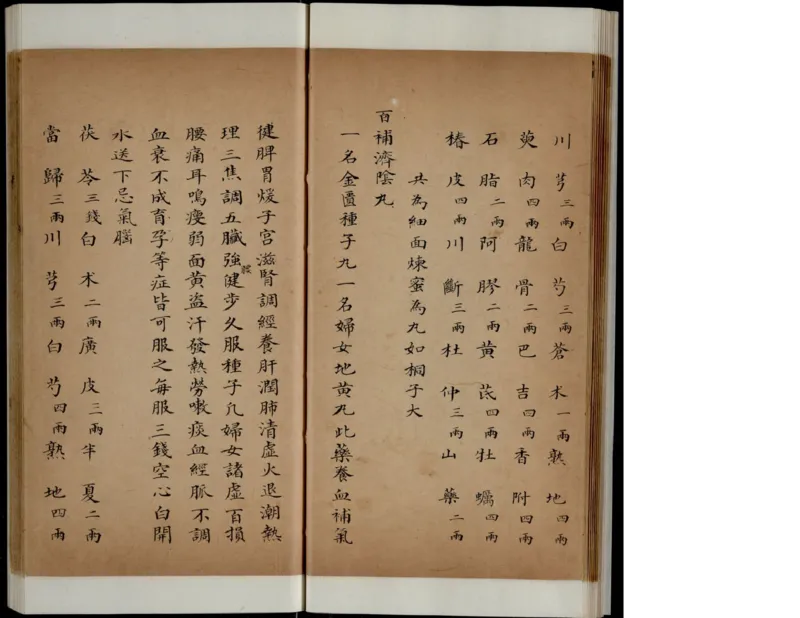 川芎三兩白芍三兩蒼朮一兩熟地四兩
萸肉四兩龍骨二兩巴吉四兩香附四兩
石脂二兩阿膠二兩黃芪四兩牡蠣四兩
椿皮四兩川斷三兩杜仲三兩山藥二兩
共為細面煉蜜為丸如桐子大
百補濟陰丸
一名金匱種子丸一名婦女地黃丸此藥養血補氣
健脾胃煖子宮滋腎調經養肝潤肺清虛火退潮熱
理三焦調五臟強健步久服種子凡婦女諸虛百損
腰痛耳鳴瘦弱面黃盜汗發熱勞嗽痰血經脈不調
血衰不成育孕等症皆可服之每服三錢空心白開
水送下忌氣腦
茯苓三錢白朮二兩廣皮三兩半夏二兩
當歸三兩川芎三兩白芍四兩熟地四兩